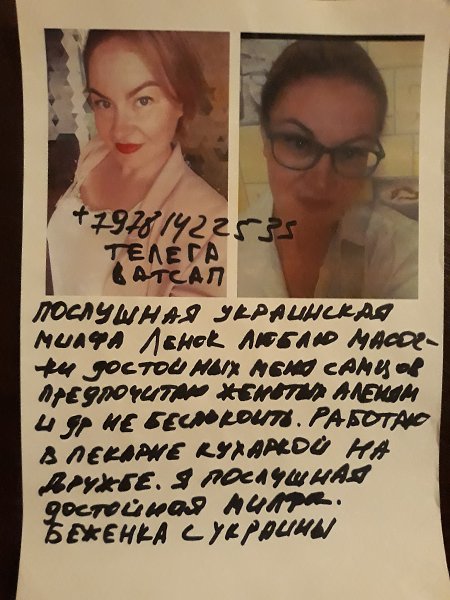 +79781422535
ТЕЛЕГА
ВАТСАП
ПОСЛУШНАЯ УКРАИНСКАЯ
МИЛФА ЛЕНОК ЛЮБЛЮ
КИ ДОСТОЙНЫХ МЕНЯ САМЦОВ
ПРЕДПОЧИТАЮ ЖЕНАТЫХ
И ДР НЕ БЕСПОКОИТЬ. РАБОТАЮ
В ПЕКАРНЕ КУХАРКОЙ НА
ДРУЖБЕ. Я ПОСЛУШНАЯ
ДОСТОЙНАЯ МИЛФА.
БЕЖЕНКА С УКРАИНЫ